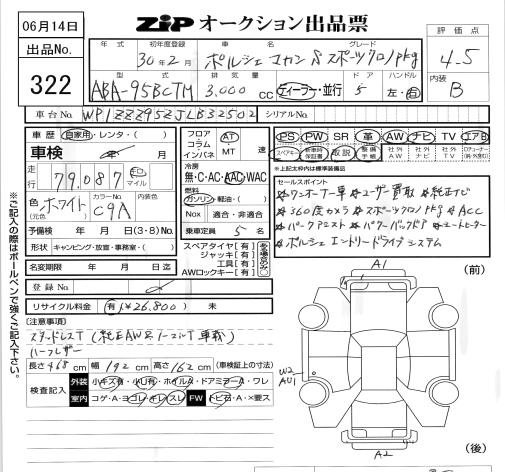 06月14日
ZIP オークション出品票
出品No. 322
年式 初年度登録 車名 グレード
30年2月 ポルシェ マカン S スポーツクロノpkg
評価点 4-5
型式 排気量 ドア ハンドル
ABA-95BCTM 3,000 CC ディーラー・並行 5 左・右
内装 B
車台No. WP1ZZZ95ZJLB32502 シリアルNo.
車歴 自家用・レンタ・( )
車検 年 月
走行 79,087 キロ マイル
色 (元色) ホワイト カラーNo. C9A 内装色
予備検 年 月 日(3・8)No.
形状 キャンピング・放送・事務室・( )
名変期限 年 月 日迄
登録No.
リサイクル料金 有(¥26,800) 未
フロア コラム インパネ AT ・MT 速
冷房 無・C・AC・AAC・WAC
燃料 ガソリン・軽油・( )
Nox 適合・非適合
乗車定員 5 名
スペアタイヤ[有]
ジャッキ[有]
工具[有]
AWロックキー[有]
PS PW SR 革 AW ナビ TV エアB
スペアキー 新車時保証書 取説 整備手帳 社外AW 社外ナビ 社外TV
※上記太枠内は標準装備品
セールスポイント
※ワンオーナー車 ※ユーザー買取 ※純正ナビ
※360度カメラ ※スポーツクロノpkg ※ACC
※パークアシスト ※パワーバックドア ※シートヒーター
※ポルシェ エントリードライブシステム
※ご記入の際はボールペンで強くご記入下さい。
[注意事項]
スタッドレスT (純正AW&ノーマルT 車載)
ハーフレザー
長さ 468 cm 幅 192 cm 高さ 162 cm (車検証上の寸法)
検査記入 外装 小キズ有・小U有・ホイルA・ドアミラーA・ワレ
室内 コゲ・A・ヨゴレ・キレ・スレ FW トビ石・A・×要ス
A1 (前)
W2
AU1
A2 (後)